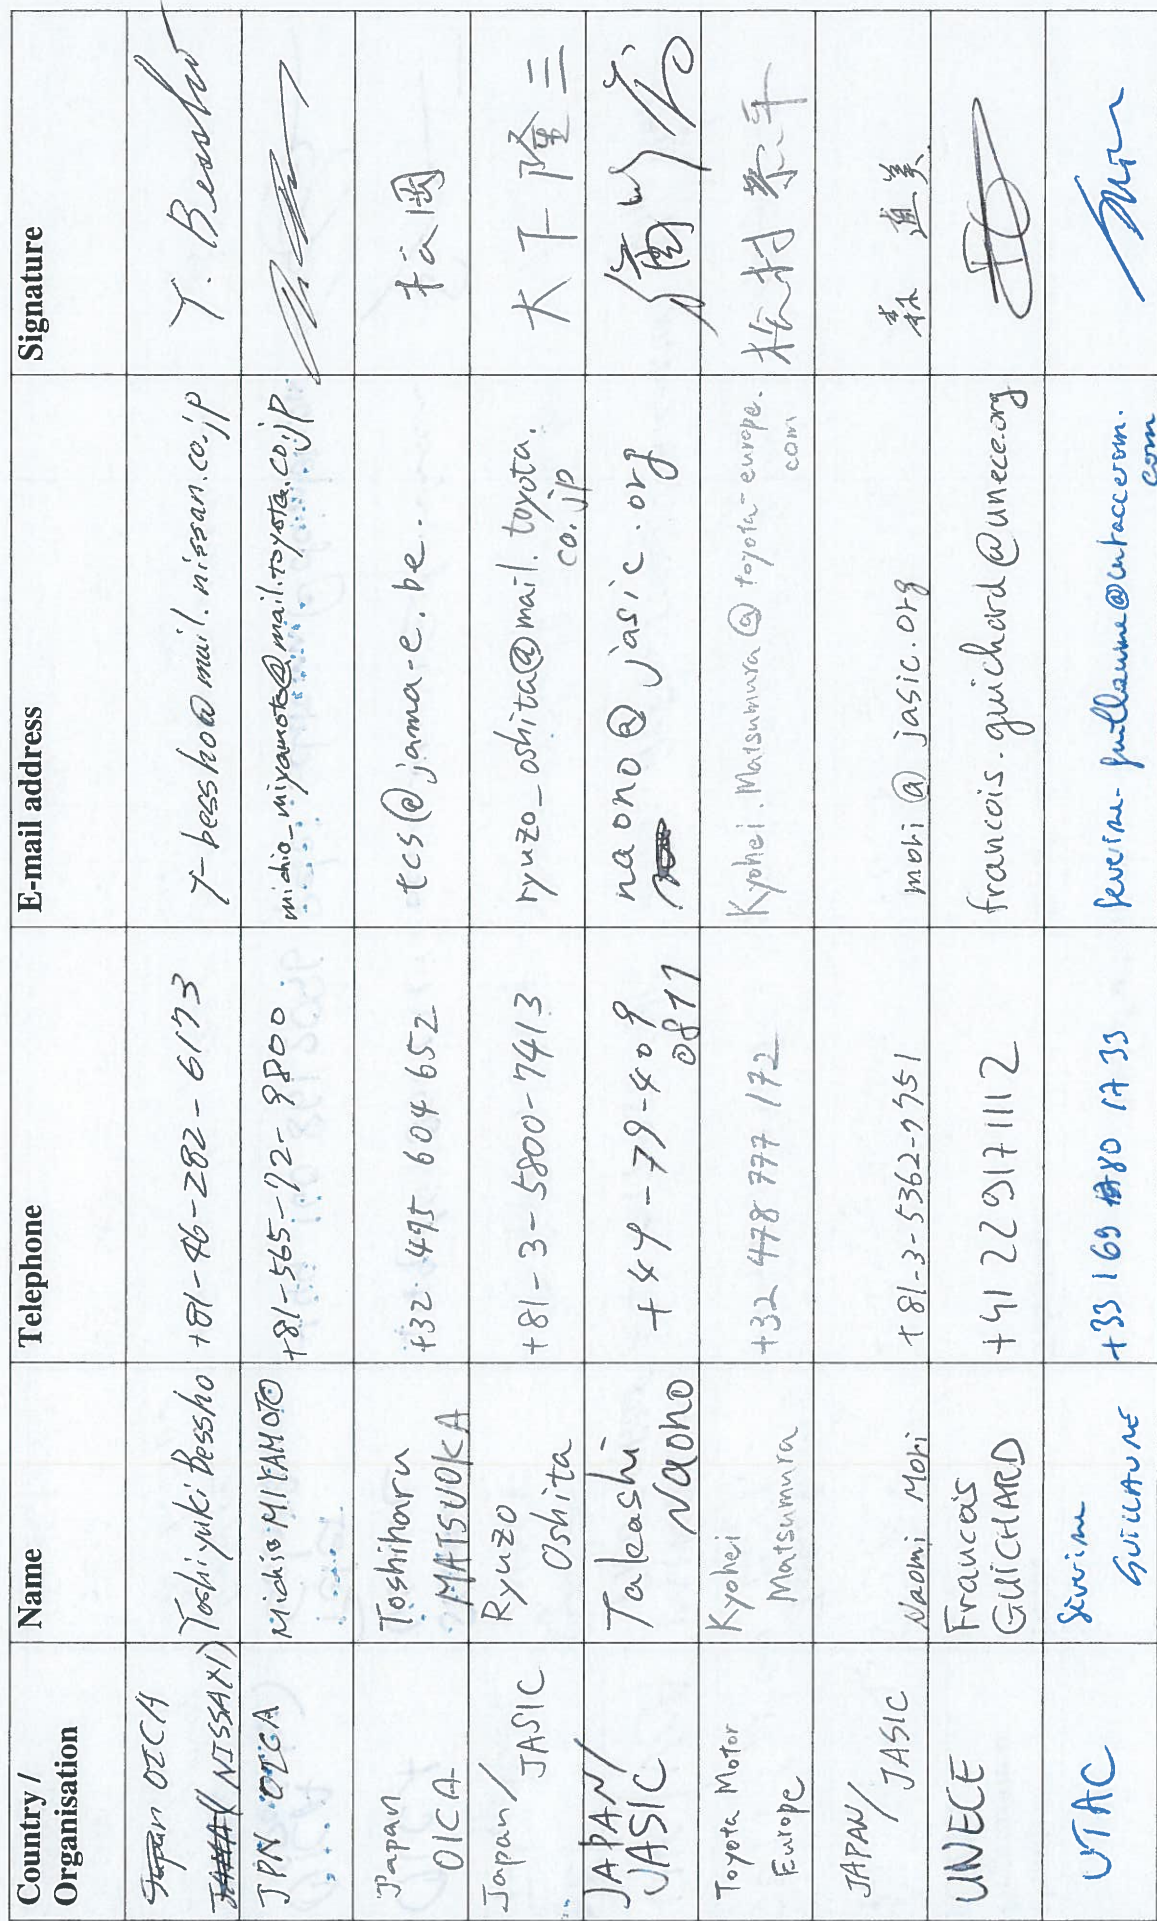 Country / Organisation Name Telephone E-mail address Signature
Japan OICA
(NISSAN) Toshiyuki Bessho +81-46-282-6173 t-bessho@mail.nissan.co.jp T. Bessho
JPN OICA Michio MIYAMOTO +81-565-72-9800 michio_miyamoto@mail.toyota.co.jp
Japan OICA Toshiharu MATSUOKA +32 495 604 652 tcs@jama-e.be 松岡
Japan/ JASIC Ryuzo Oshita +81-3-5800-7413 ryuzo_oshita@mail.toyota.co.jp 大下隆三
JAPAN/ JASIC Takashi Naono +44-79-409 0811 naono@jasic.org
Toyota Motor Europe Kyohei Matsumura +32 478 777 172 Kyohei.Matsumura@toyota-europe.com 松村恭平
JAPAN/ JASIC Naomi Mori +81-3-5362-7751 mori@jasic.org 森 直美
UNECE Francois GUICHARD +41 22 917 1112 francois.guichard@unece.org
UTAC Séverine GUILLAUME +33 169 80 17 33 severine.guillaume@utaceram.com